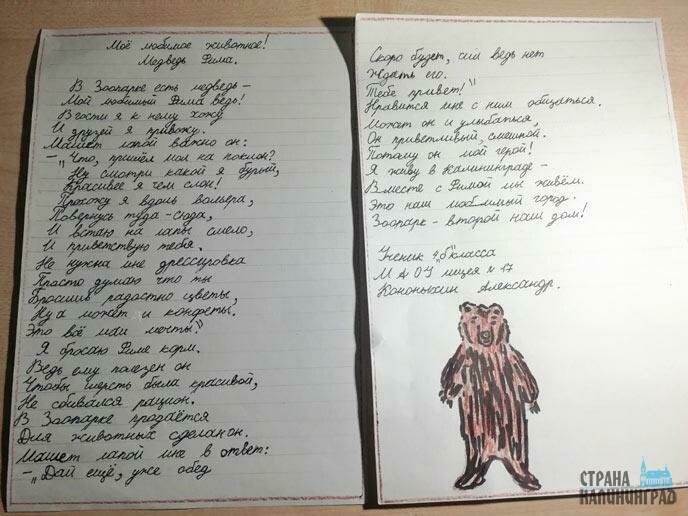 Моё любимое животное!
Медведь Фима.
В Зоопарке есть медведь –
Мой любимый Фима ведь!
В гости я к нему хожу
И друзей я привожу.
Машет лапой важно он:
– „Что, пришёл мол на поклон?
Ну смотри какой я бурый,
Красивее я чем слон!
Прохожу я вдоль вольера,
Повернусь туда-сюда,
И встаю на лапы смело,
И приветствую тебя.
Не нужна мне дрессировка
Просто думаю что ты
Бросишь радостно цветы,
Ну а может и конфеты.
Это всё мои мечты!”
Я бросаю Фиме корм.
Ведь ему полезен он
Чтобы шерсть была красивой,
Не сбивался рацион.
В Зоопарке продаётся
Для животных сделан он.
Машет лапой мне в ответ:
– „Дай ещё, уже обед
Скоро будет, сил ведь нет
Ждать его.
Тебе привет!”
Нравится мне с ним общаться.
Может он и улыбаться,
Он приветливый, смешной.
Потому он мой герой!
Я живу в Калининграде –
Вместе с Фимой мы живём.
Это наш любимый город.
Зоопарк – второй наш дом!
Ученик „Б” класса
МАОУ лицея № 17
Кононыхин Александр.
СТРАНА
КАЛИНИНГРАД